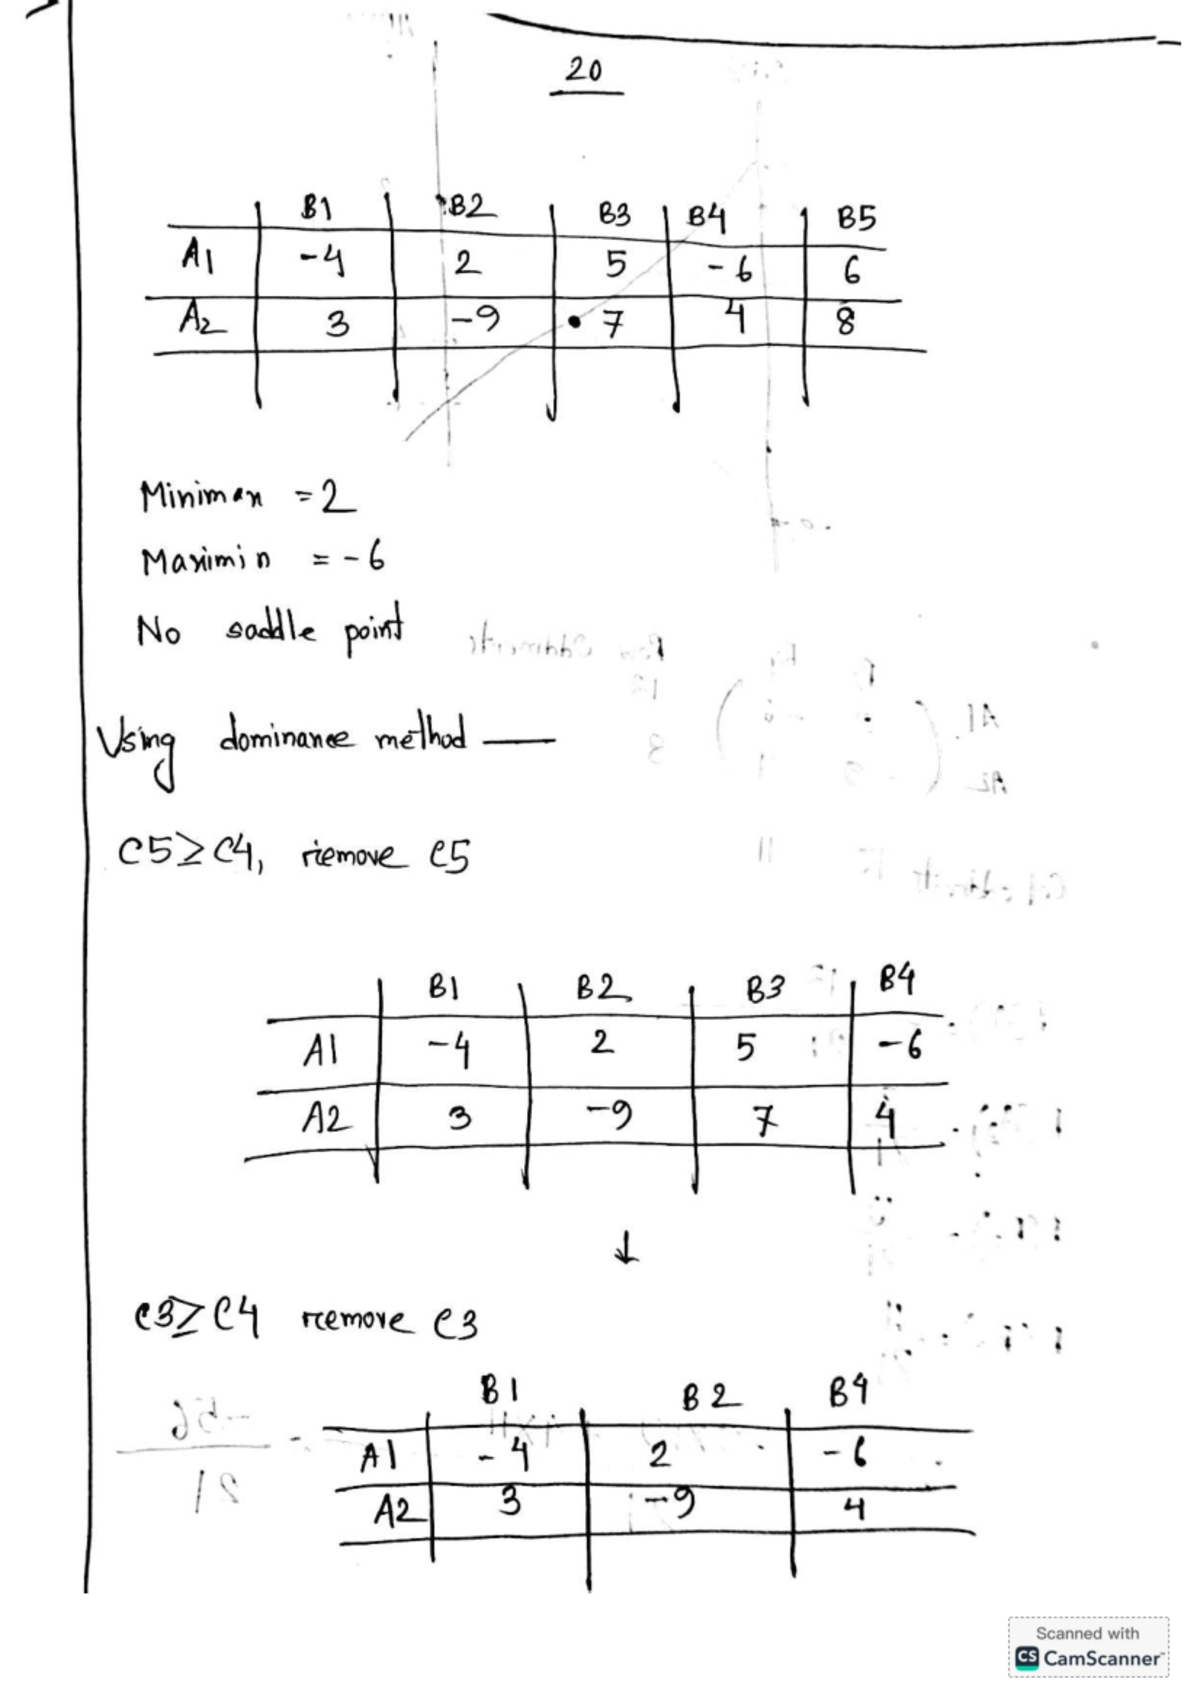 20
B1 B2 B3 B4 B5
A1 -4 2 5 -6 6
A2 3 -9 7 4 8
Minimax = 2
Maximin = -6
No saddle point
Using dominance method —
C5≥C4, remove C5
B1 B2 B3 B4
A1 -4 2 5 -6
A2 3 -9 7 4
↓
C3≥C4 remove C3
B1 B2 B4
A1 -4 2 -6
A2 3 -9 4
Scanned with
CS CamScanner